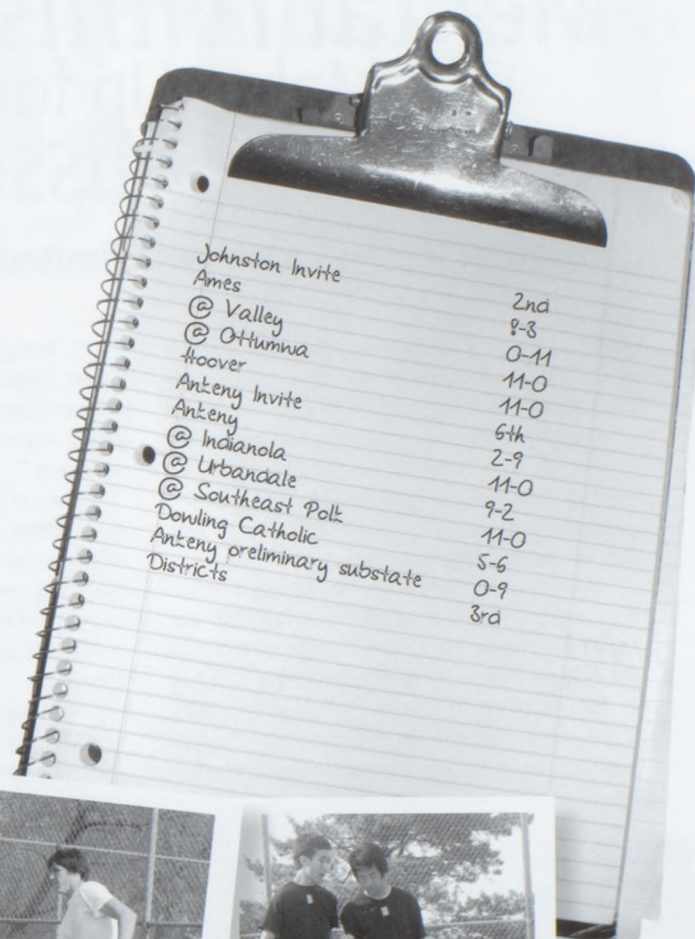 Johnston Invite 2nd
Ames 8-3
@ Valley 0-11
@ Ottumwa 11-0
Hoover 11-0
Ankeny Invite 6th
Ankeny 2-9
@ Indianola 11-0
@ Urbandale 9-2
@ Southeast Polk 11-0
Dowling Catholic 5-6
Ankeny preliminary substate 0-9
Districts 3rd